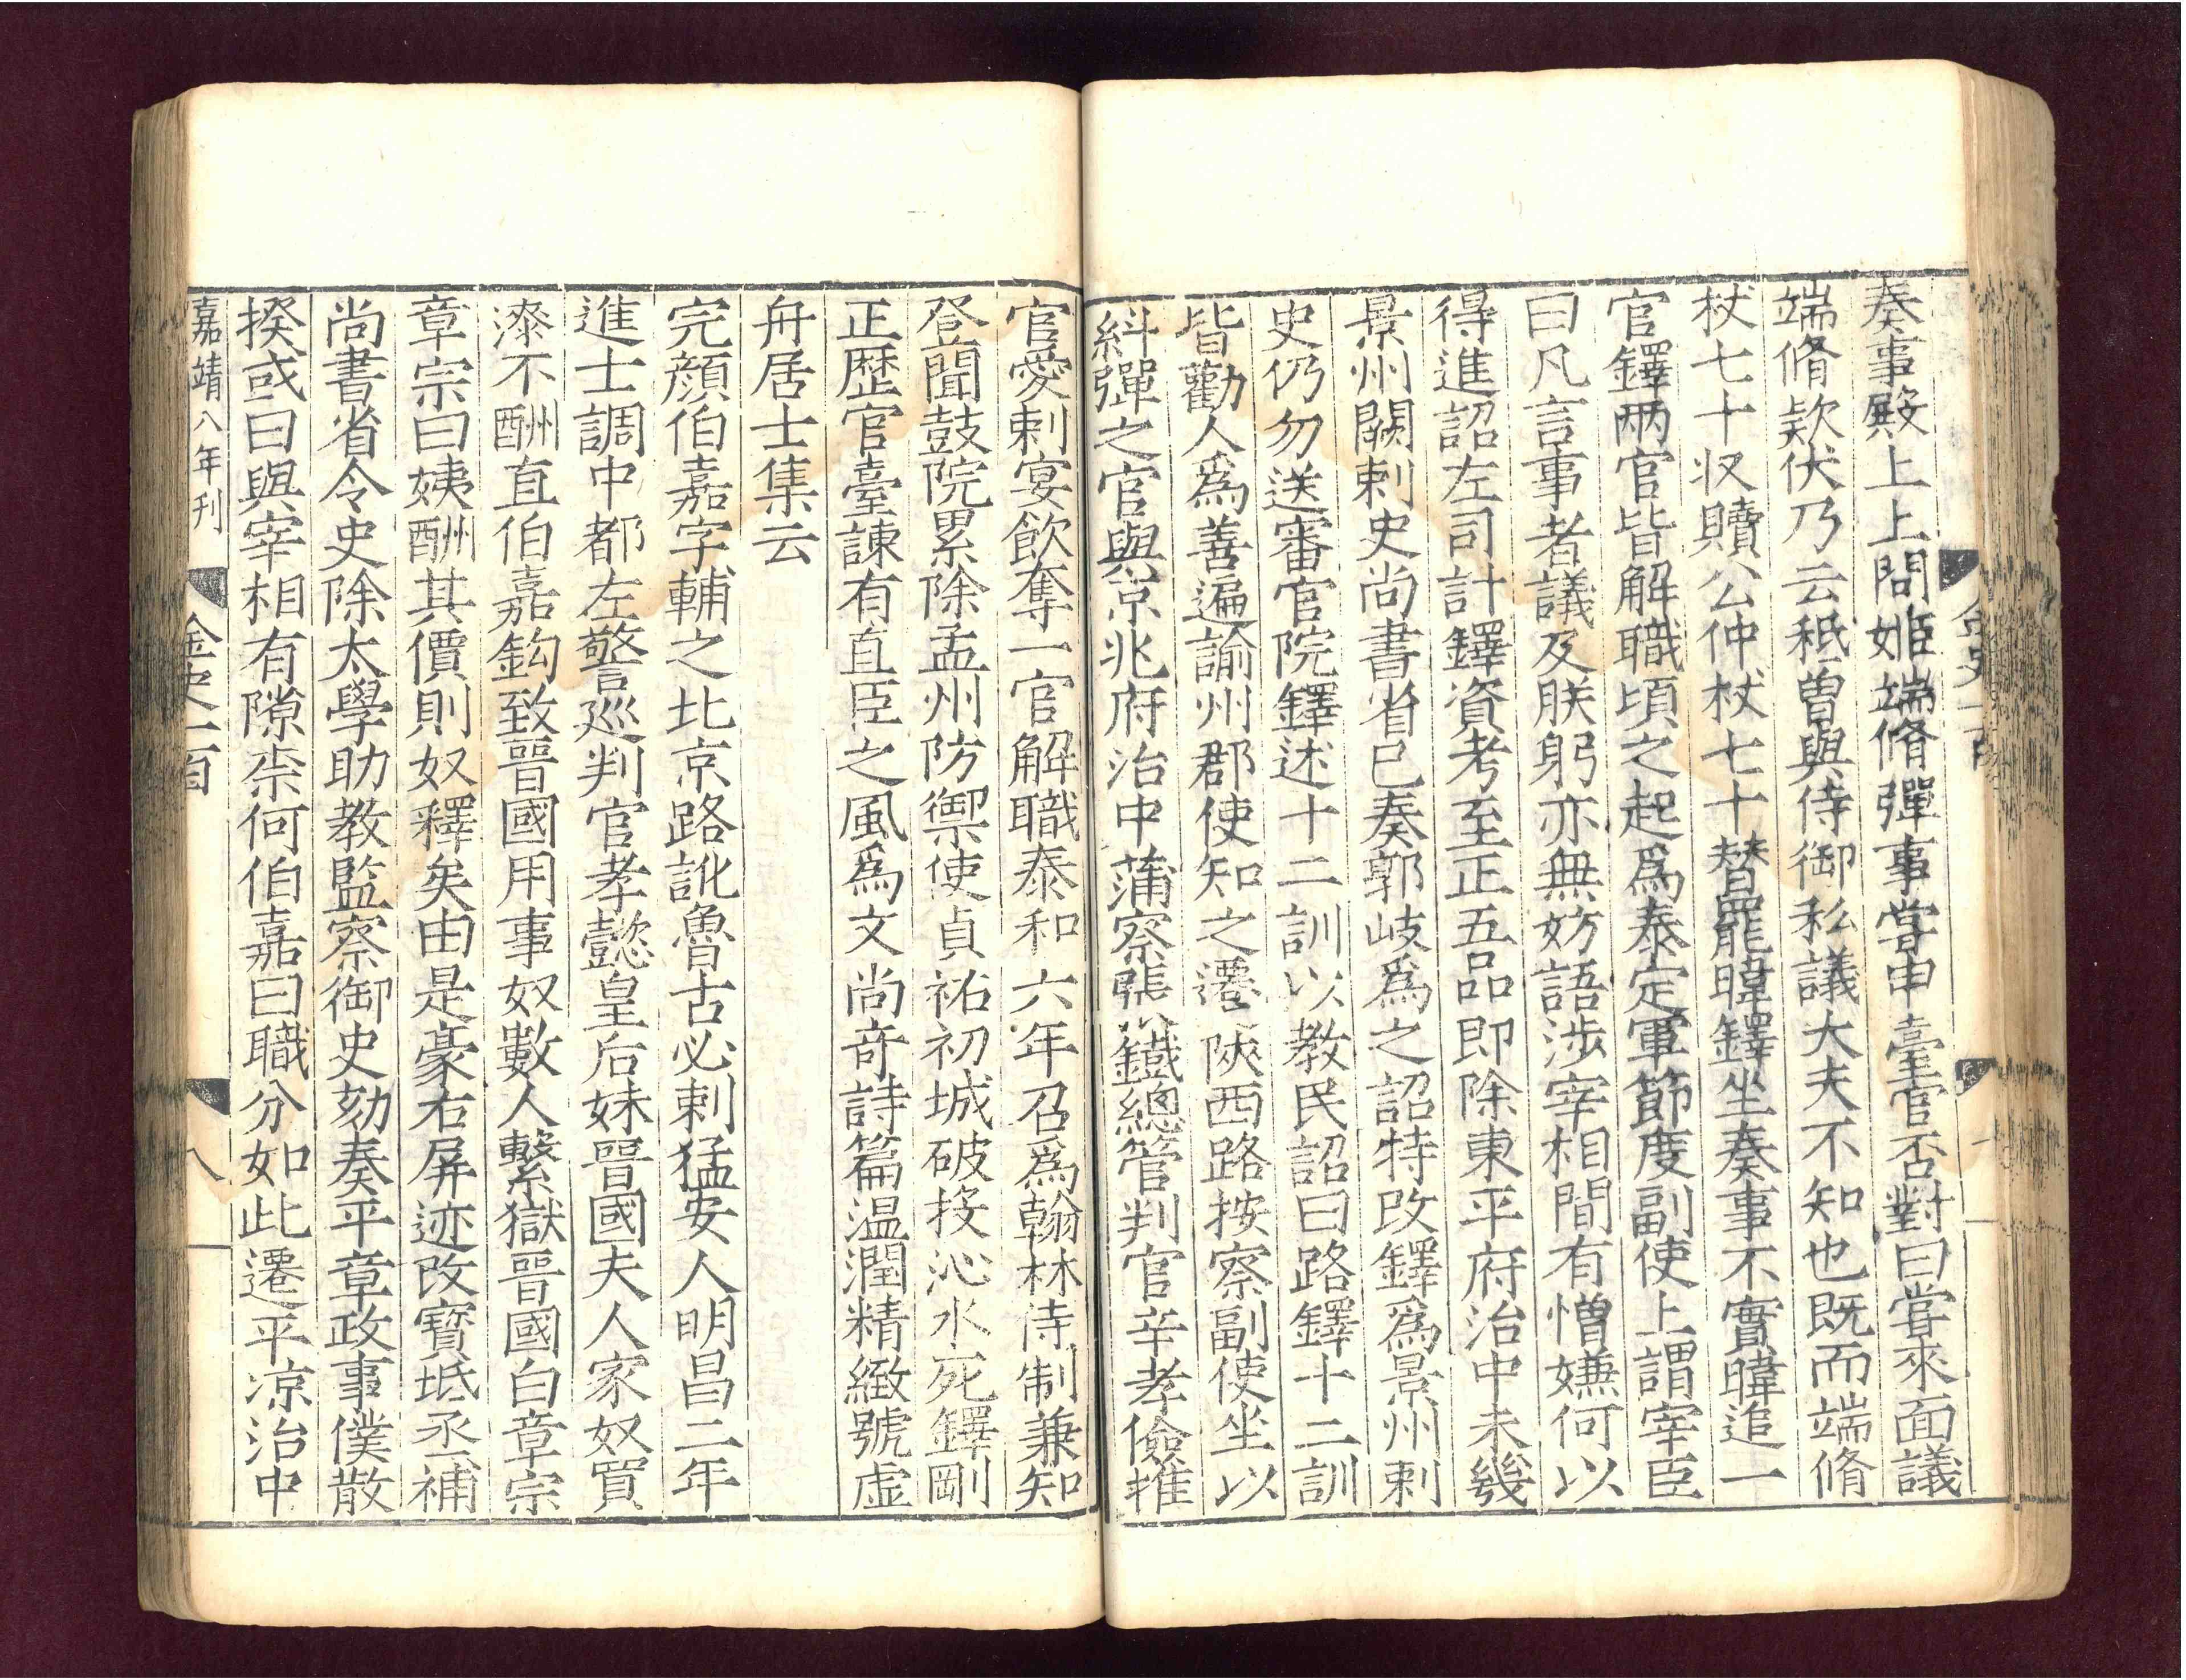 奏事殿上上問姬端脩彈事嘗申臺官否對曰嘗來面議
端脩款伏乃云秪曽與侍御私議大夫不知也既而端脩
杖七十収贖公仲杖七十替罷暐鐸坐奏事不實暐追一
官鐸兩官皆解職頃之起爲泰定軍節度副使上謂宰臣
曰凡言事者議及朕躬亦無妨語涉宰相間有憎嫌何以
得進詔左司計鐸資考至正五品即除東平府治中未幾
景州闕刺史尚書省已奏郭岐爲之詔特改鐸爲景州刺
史仍勿送審官院鐸述十二訓以教民詔曰路鐸十二訓
皆勸人爲善遍諭州郡使知之遷陝西路按察副使坐以
糾彈之官與京兆府治中蒲察張鐵總管判官辛孝儉推
官愛剌宴飲奪一官解職泰和六年召爲翰林待制兼知
登聞鼓院累除孟州防禦使貞祐初城破投沁水死鐸剛
正歷官臺諫有直臣之風爲文尚奇詩篇温潤精緻號虛
舟居士集云
完顔伯嘉字輔之北京路訛魯古必剌猛安人明昌二年
進士調中都左警巡判官孝懿皇后妹晉國夫人家奴買
漆不酬直伯嘉鈎致晉國用事奴數人繫獄晉國白章宗
章宗曰姨酬其價則奴釋矣由是豪右屏迹改寳坻丞補
尚書省令史除太學助教監察御史劾奏平章政事僕散
揆或曰與宰相有隙柰何伯嘉曰職分如此遷平凉治中
嘉靖八年刊
金史一百
八